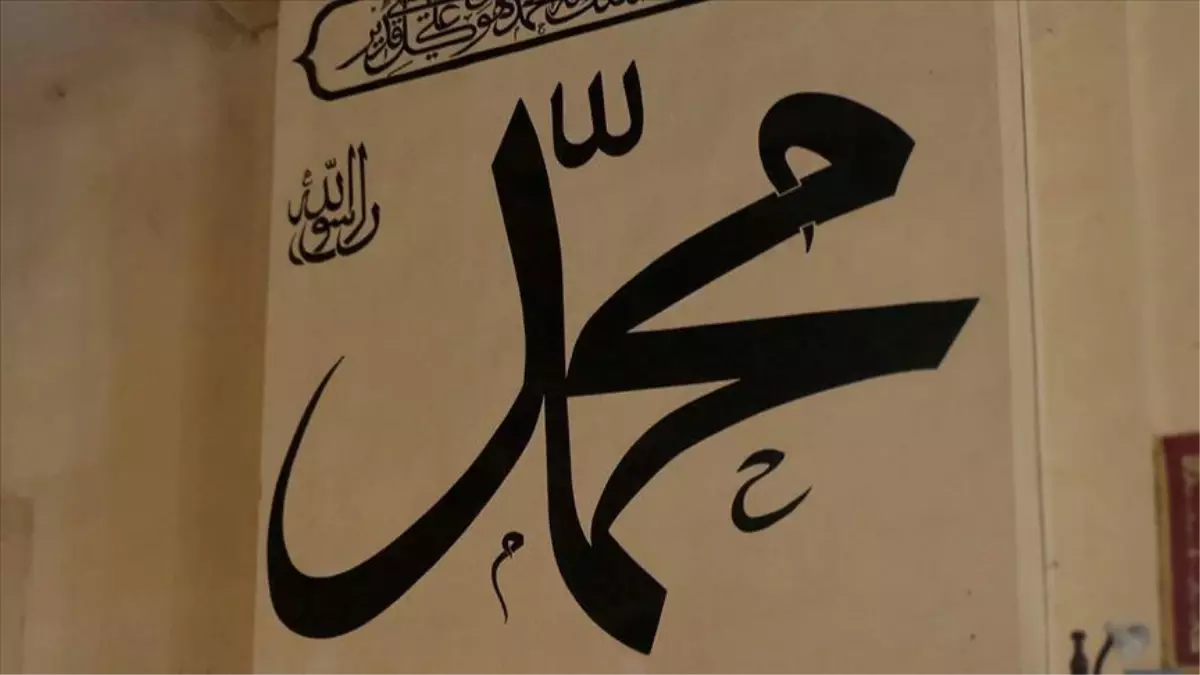 الحمد وهو على كل شيء قدير
محمد
رسول الله